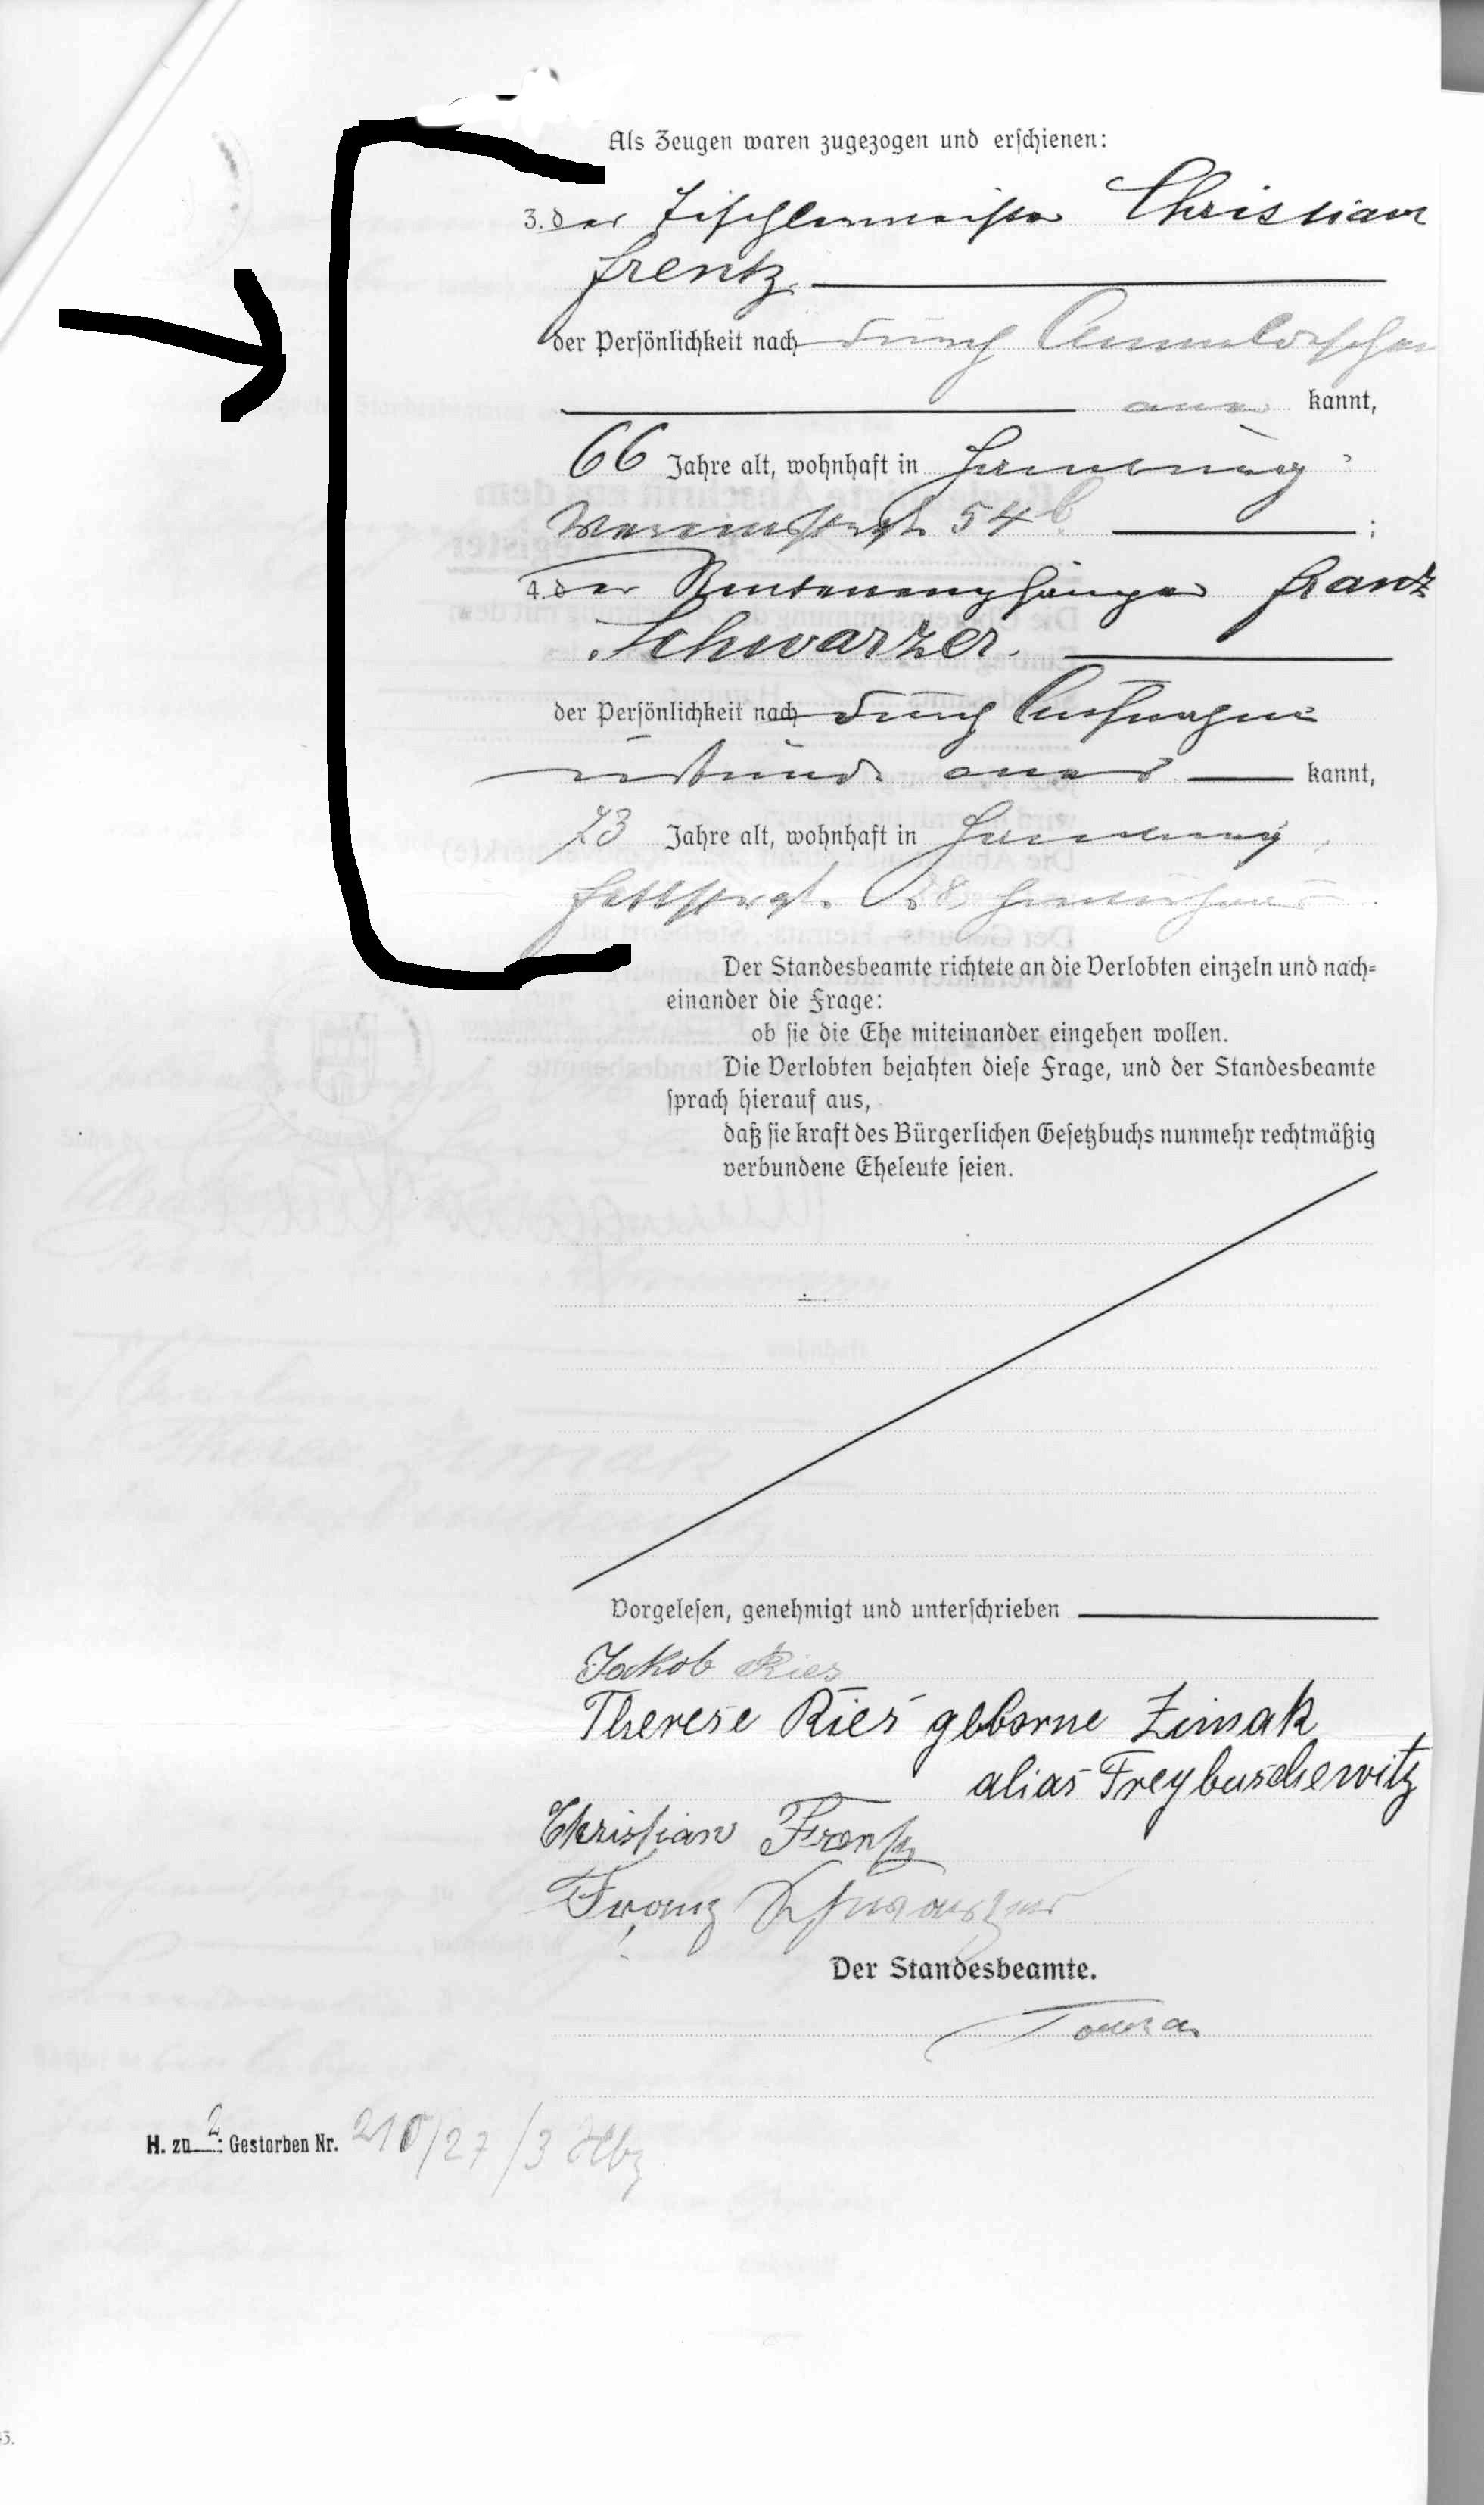 Als Zeugen waren zugezogen und erschienen:
3. der Tischlermeister Christian
Frentz
der Persönlichkeit nach durch Anmeldeschein
aner kannt,
66 Jahre alt, wohnhaft in Hamburg,
Vereinsstraße 54 b ;
4. der Rentenempfänger Franz
Schwarzer
der Persönlichkeit nach durch
aner kannt,
73 Jahre alt, wohnhaft in Hamburg,
Der Standesbeamte richtete an die Verlobten einzeln und nach-
einander die Frage:
ob sie die Ehe miteinander eingehen wollen.
Die Verlobten bejahten diese Frage, und der Standesbeamte
sprach hierauf aus,
daß sie kraft des Bürgerlichen Gesetzbuchs nunmehr rechtmäßig
verbundene Eheleute seien.
Vorgelesen, genehmigt und unterschrieben
Jakob Ries
Therese Ries geborne Zimak
alias Freybuschewitz
Christian Frentz
Franz Schwarzer
Der Standesbeamte.
H. zu 2: Gestorben Nr. 210/27/3 Hbg